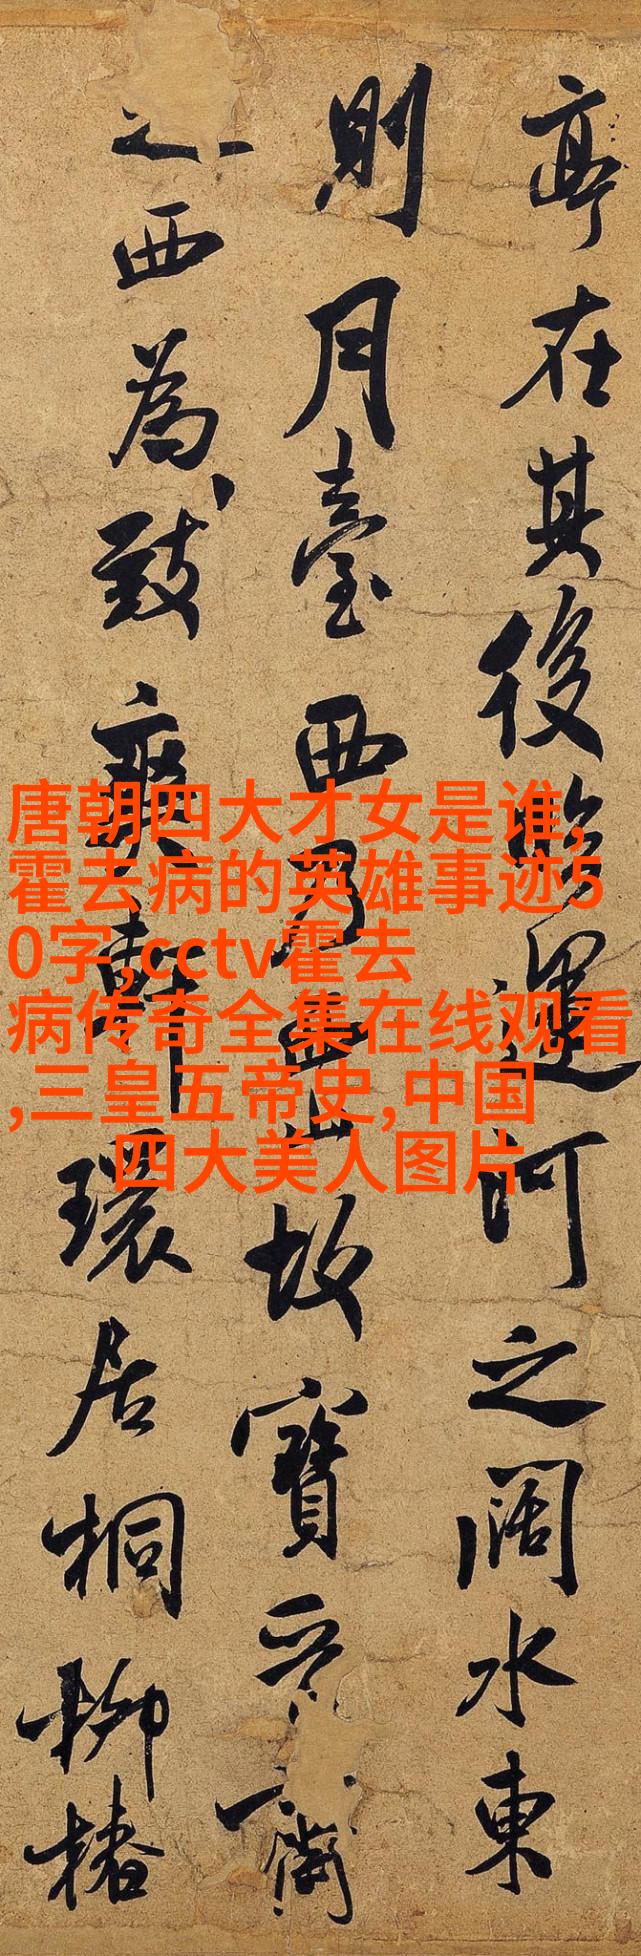 亭在其後臨運河之闊水東
則月臺西乃西山故寶晉齋
之西為致爽軒環居桐柳椿
唐朝四大才女是谁,
霍去病的英雄事迹5
0字,cctv霍去
病传奇全集在线观看
,三皇五帝史,中国
四大美人图片